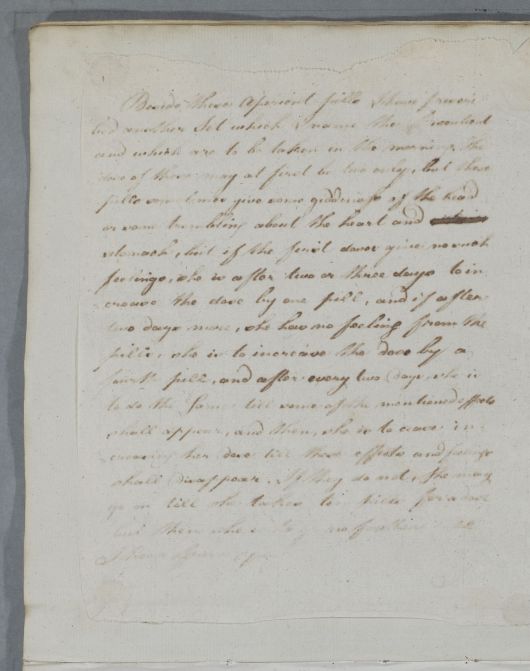 Beside these aperient pills I have prescri-
bed another set which I name the
and which are to be taken in the morning. The
dose of these may at first be two only, but these
pills sometimes give some giddiness of the head
or some trembling about the heart and
stomach, but if the first doses give no such
feelings, she is after two or three days to in-
crease the dose by one pill, and if after
two days more, she has no feeling from the
pills, she is to increase the dose by a
fourth pill, and after every two days, she is
to do the same till some of the mentioned effects
shall appear, and then, she is to cease in-
creasing her dose till these effects and feelings
shall disappear. If they do not, she may
go on till she takes ten pills for a dose
but then she is to go no further.
I have